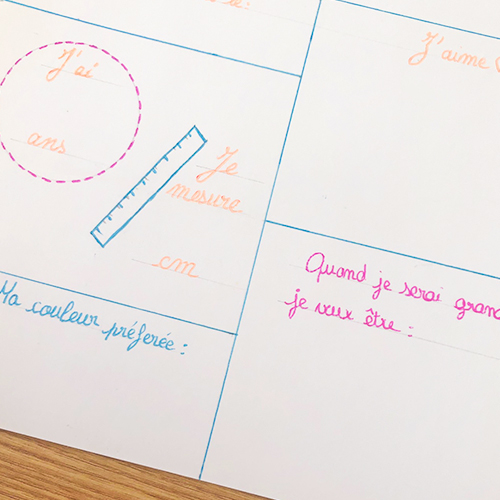 J'ai
ans
Je
mesure
cm
J'aime
Ma couleur préferée :
Quand je serai grand
je veux être :